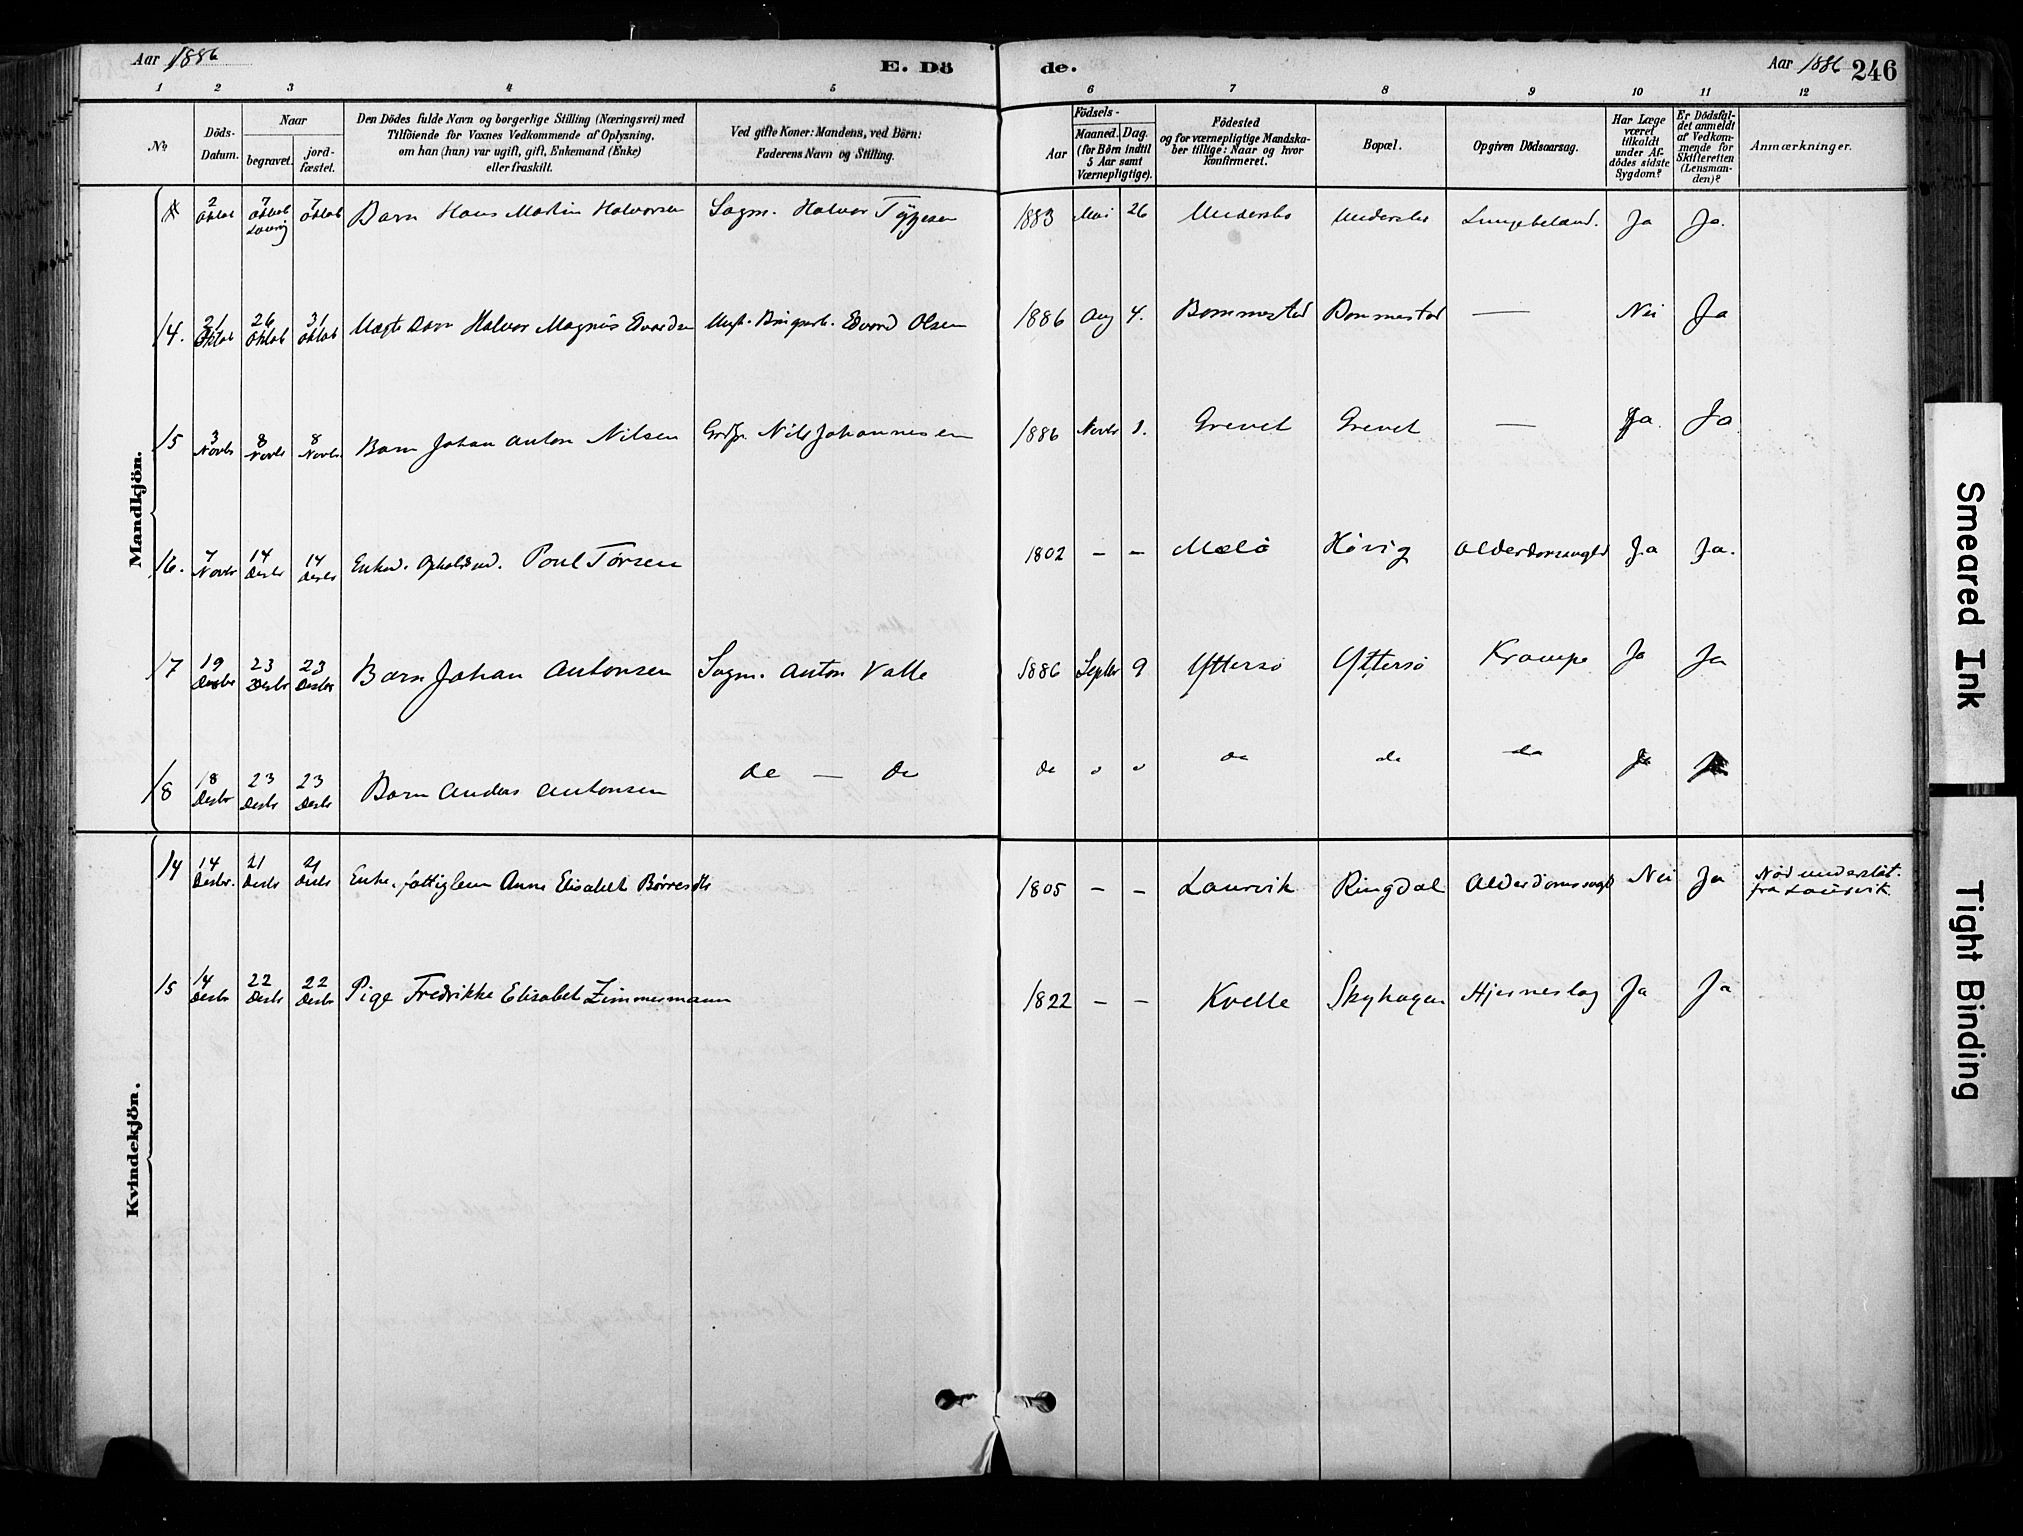 Aar 1886
E. Dö
de.
Aar 1886
246
1 2 3 4 5
6 7 8 9 10 11 12
No
Döds-
Datum.
Naar
begravet.
jord-
fæstet.
Den Dödes fulde Navn og borgerlige Stilling (Næringsvei) med
Tilföiende for Voxnes Vedkommende af Oplysning,
om han (hun) var ugift, gift, Enkemand (Enke)
eller fraskilt.
Ved gifte Koner: Mandens, ved Börn:
Faderens Navn og Stilling.
Födsels-
Aar
Maaned. Dag.
(for Börn indtil
5 Aar samt
Værnepligtige).
Födested
og for værnepligtige Mandska-
ber tillige: Naar og hvor
konfirmeret.
Bopæl.
Opgiven Dödsaarsag.
Har Læge
været
tilkaldt
under Af-
dödes sidste
Sygdom?
Er Dödsfal-
det anmeldt
af Vedkom-
mende for
Skifteretten
(Lensman-
den)?
Anmærkninger.
Mandkjön.
2 Oktob 7 Oktob 7 Oktob Barn Hans Martin Halvorsen Sagm. Halvor 1883 Mai 26 Undersbo Undersbo Ja Ja.
14. 21 Oktob 26 Oktob 31 Oktob Uægte Barn Halvor Magnus Edvardsen Ungk. Edvard Olsen 1886 Aug 4. Bommestad Bommestad — Nei Ja
15 3 Novbr 8 Novbr 8 Novbr. Barn Johan Anton Nilsen Grdbr. Nils Johannesen 1886 Novbr 1. Grevet Grevet — Ja. Ja
16. 7 Novbr 14 Desbr 14 Desbr Enkem. Opholdsmd. Poul Torsen 1802 — — Melö Hövig Alderdomssvaghd Ja Ja.
17 19 Desbr 23 Desbr 23 Desbr Barn Johan Antonsen Sagm. Anton Valle 1886 Septbr 9 Yttersö Yttersö Krampe Ja Ja
18 18 Desbr 23 Desbr 23 Desbr Barn Anders Antonsen do — do do " " do do do Ja
Kvindekjön.
14 14 Desbr. 21 Desbr 21 Desbr Enke. fattiglem Anne Elisabeth 1805 — — Laurvik Ringdal Alderdomssvaghd Nei Ja Nödunderstöt.
fra Laurvik.
15 14 Desbr 22 Desbr 22 Desbr Pige Fredrikke Elisabet Zimmermann 1822 — — Kvelle Skyhagen Hjerneslag Ja Ja
Smeared Ink
Tight Binding